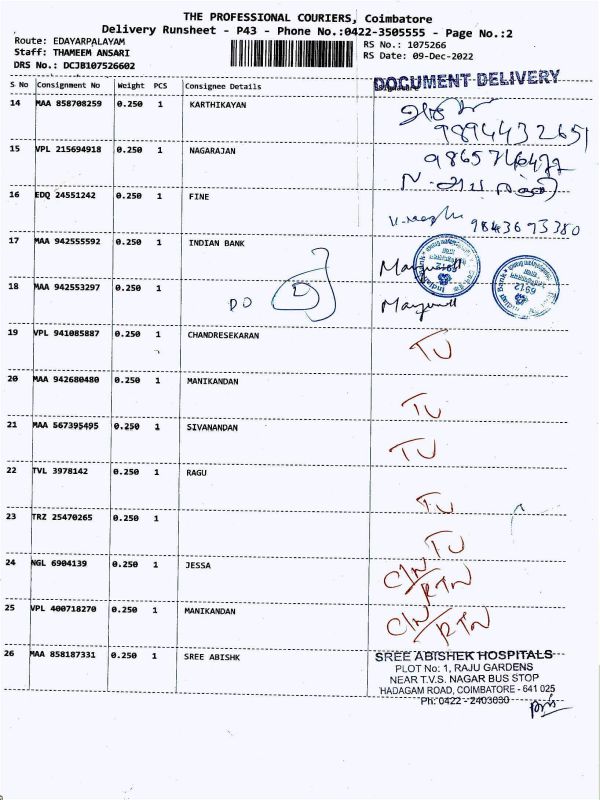 THE PROFESSIONAL COURIERS, Coimbatore
Delivery Runsheet - P43 - Phone No.:0422-3505555 - Page No.:2
Route: EDAYARPALAYAM
Staff: THAMEEM ANSARI
DRS No.: DCJB107526602
RS No.: 1075266
RS Date: 09-Dec-2022
DOCUMENT DELIVERY
S No Consignment No Weight PCS Consignee Details
14 MAA 858708259 0.250 1 KARTHIKAYAN
9894432651
15 VPL 215694918 0.250 1 NAGARAJAN
16 EDQ 24551242 0.250 1 FINE
9843673380
17 MAA 942555592 0.250 1 INDIAN BANK
18 MAA 942553297 0.250 1
DO
19 VPL 941085887 0.250 1 CHANDRESEKARAN TU
20 MAA 942680480 0.250 1 MANIKANDAN TU
21 MAA 567395495 0.250 1 SIVANANDAN TU
22 TVL 3978142 0.250 1 RAGU TU
23 TRZ 25470265 0.250 1 TU
24 NGL 6904139 0.250 1 JESSA C/N/RTN
25 VPL 400718270 0.250 1 MANIKANDAN C/N/RTN
26 MAA 858187331 0.250 1 SREE ABISHK
SREE ABISHEK HOSPITALS
PLOT No: 1, RAJU GARDENS
NEAR T.V.S. NAGAR BUS STOP
HADAGAM ROAD, COIMBATORE - 641 025
Ph: 0422 - 2403030